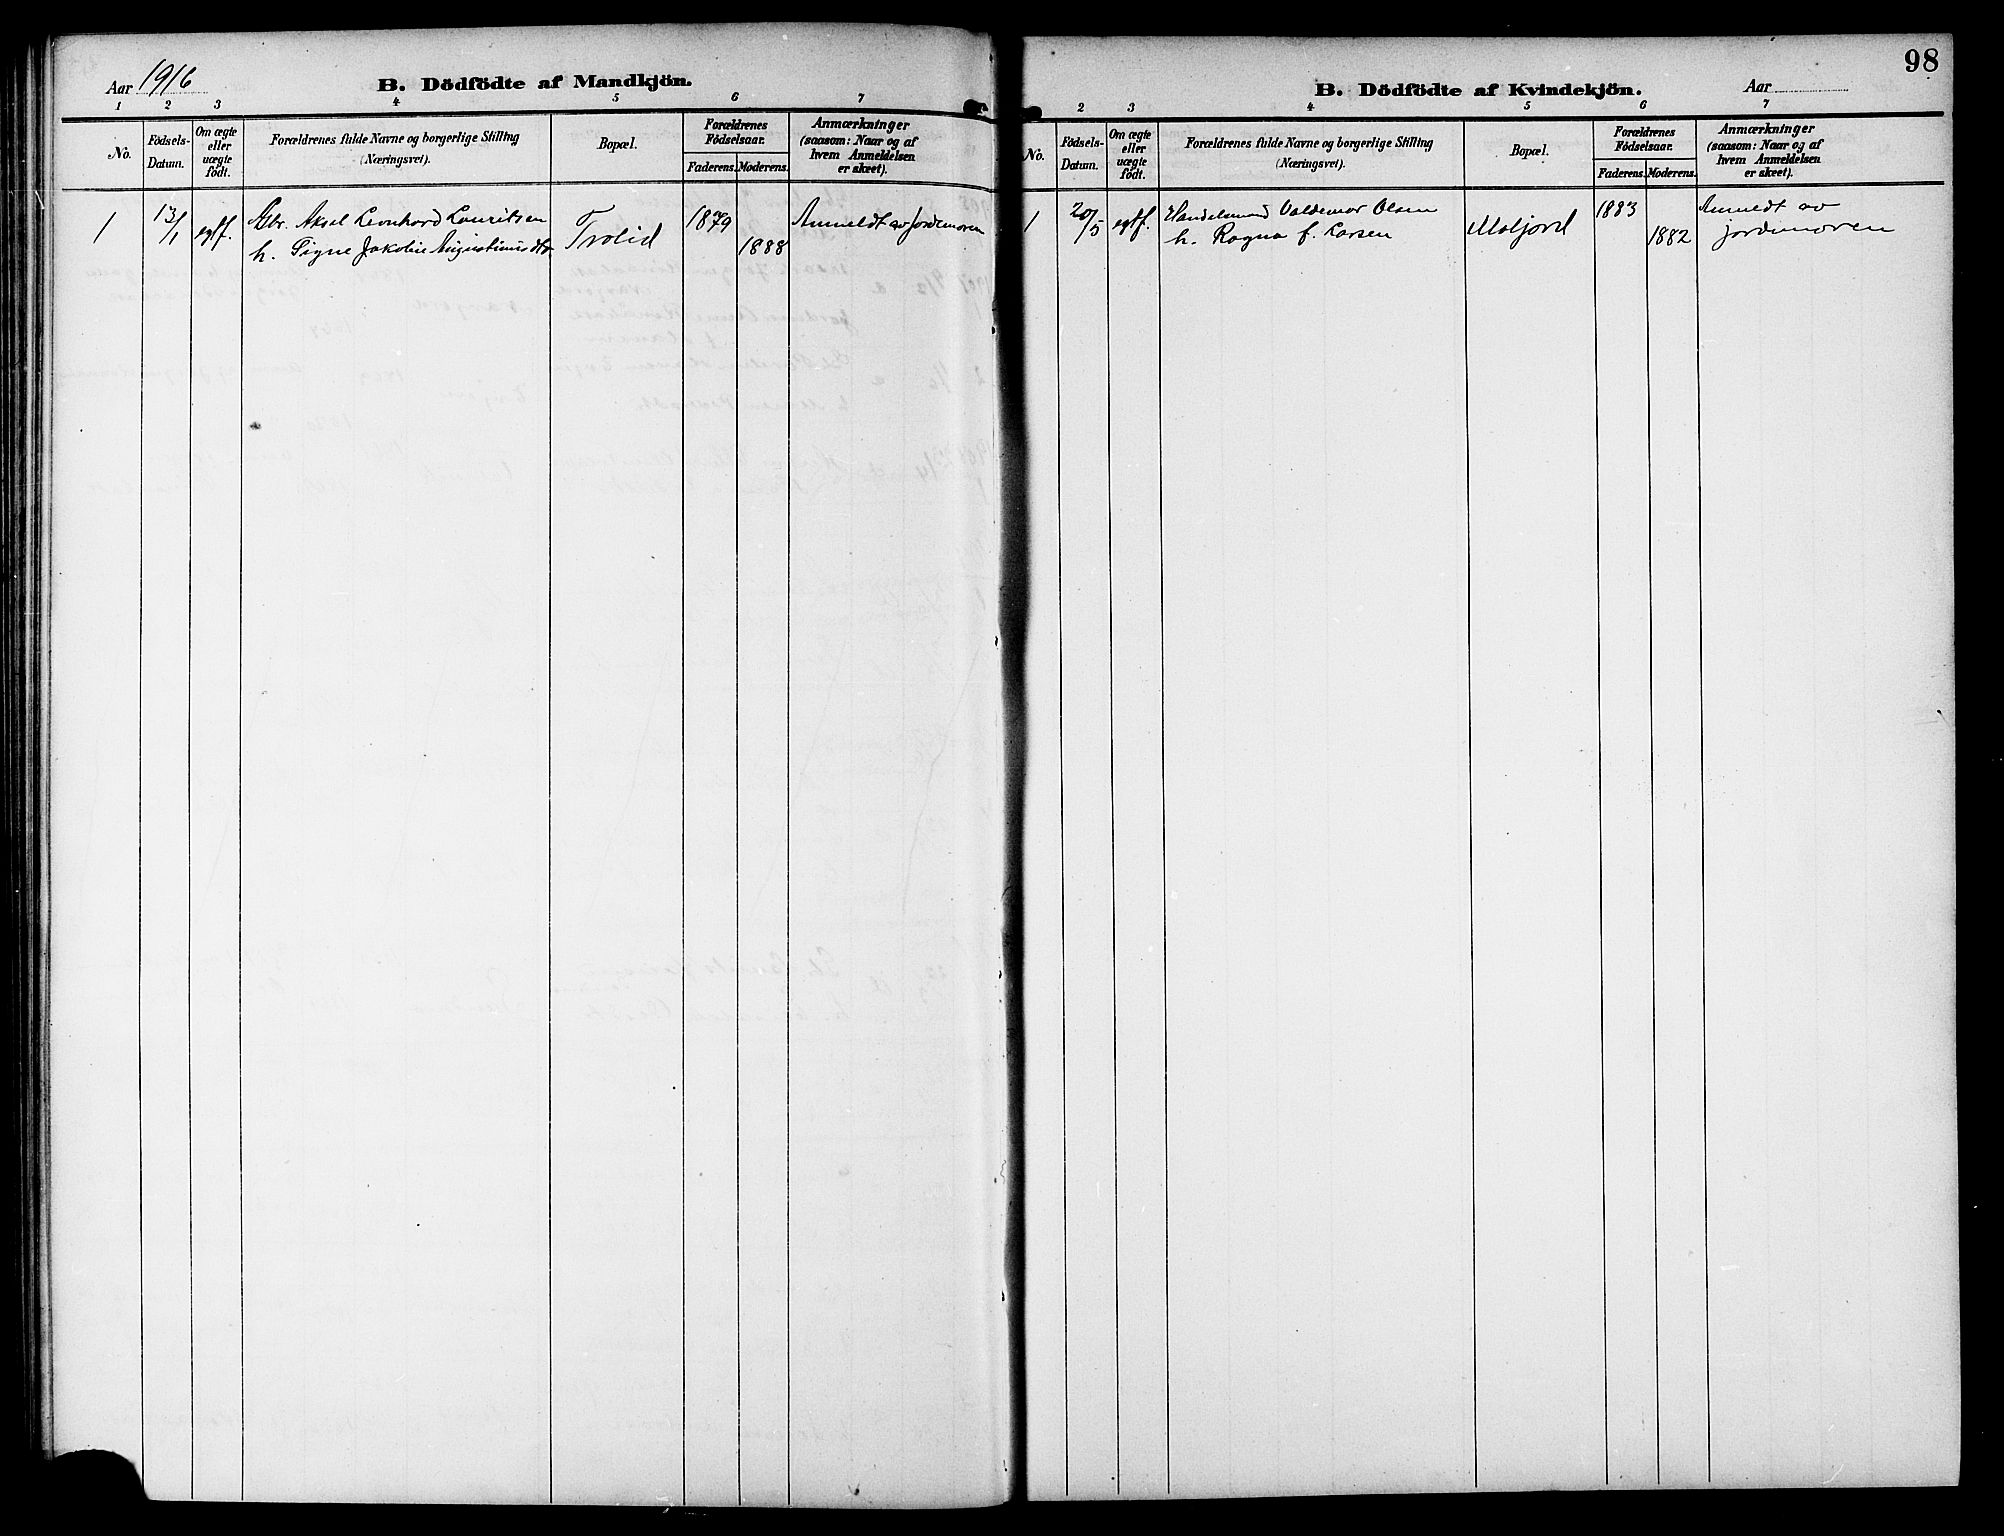 Aar 1916
B. Dödfödte af Mandkjön.
1 2 3 4 5 6 7
No.
Födsels-
Datum.
Om ægte
eller
uægte
födt.
Forældrenes fulde Navne og borgerlige Stilling
(Næringsvei).
Bopæl.
Forældrenes
Födselsaar.
Faderens. Moderens.
Anmærkninger
(saasom: Naar og af
hvem Anmeldelsen
er skeet).
1 13/1 egtf. Gbr. Aksel Leonhard Lauritsen Trolid 1879 Anmeldt av jordmoren
h. Signe Jakobie Augustinusdtr 1888
98
B. Dödfödte af Kvindekjön.
Aar
2 3 4 5 6 7
No.
Födsels-
Datum.
Om ægte
eller
uægte
födt.
Forældrenes fulde Navne og borgerlige Stilling
(Næringsvei).
Bopæl.
Forældrenes
Födselsaar.
Faderens. Moderens.
Anmærkninger
(saasom: Naar og af
hvem Anmeldelsen
er skeet).
1 20/5 egtf. Handelsmand Valdemar Olsen Maljord 1883 Anmeldt av
h. Ragna f. Larsen 1882 jordemoren